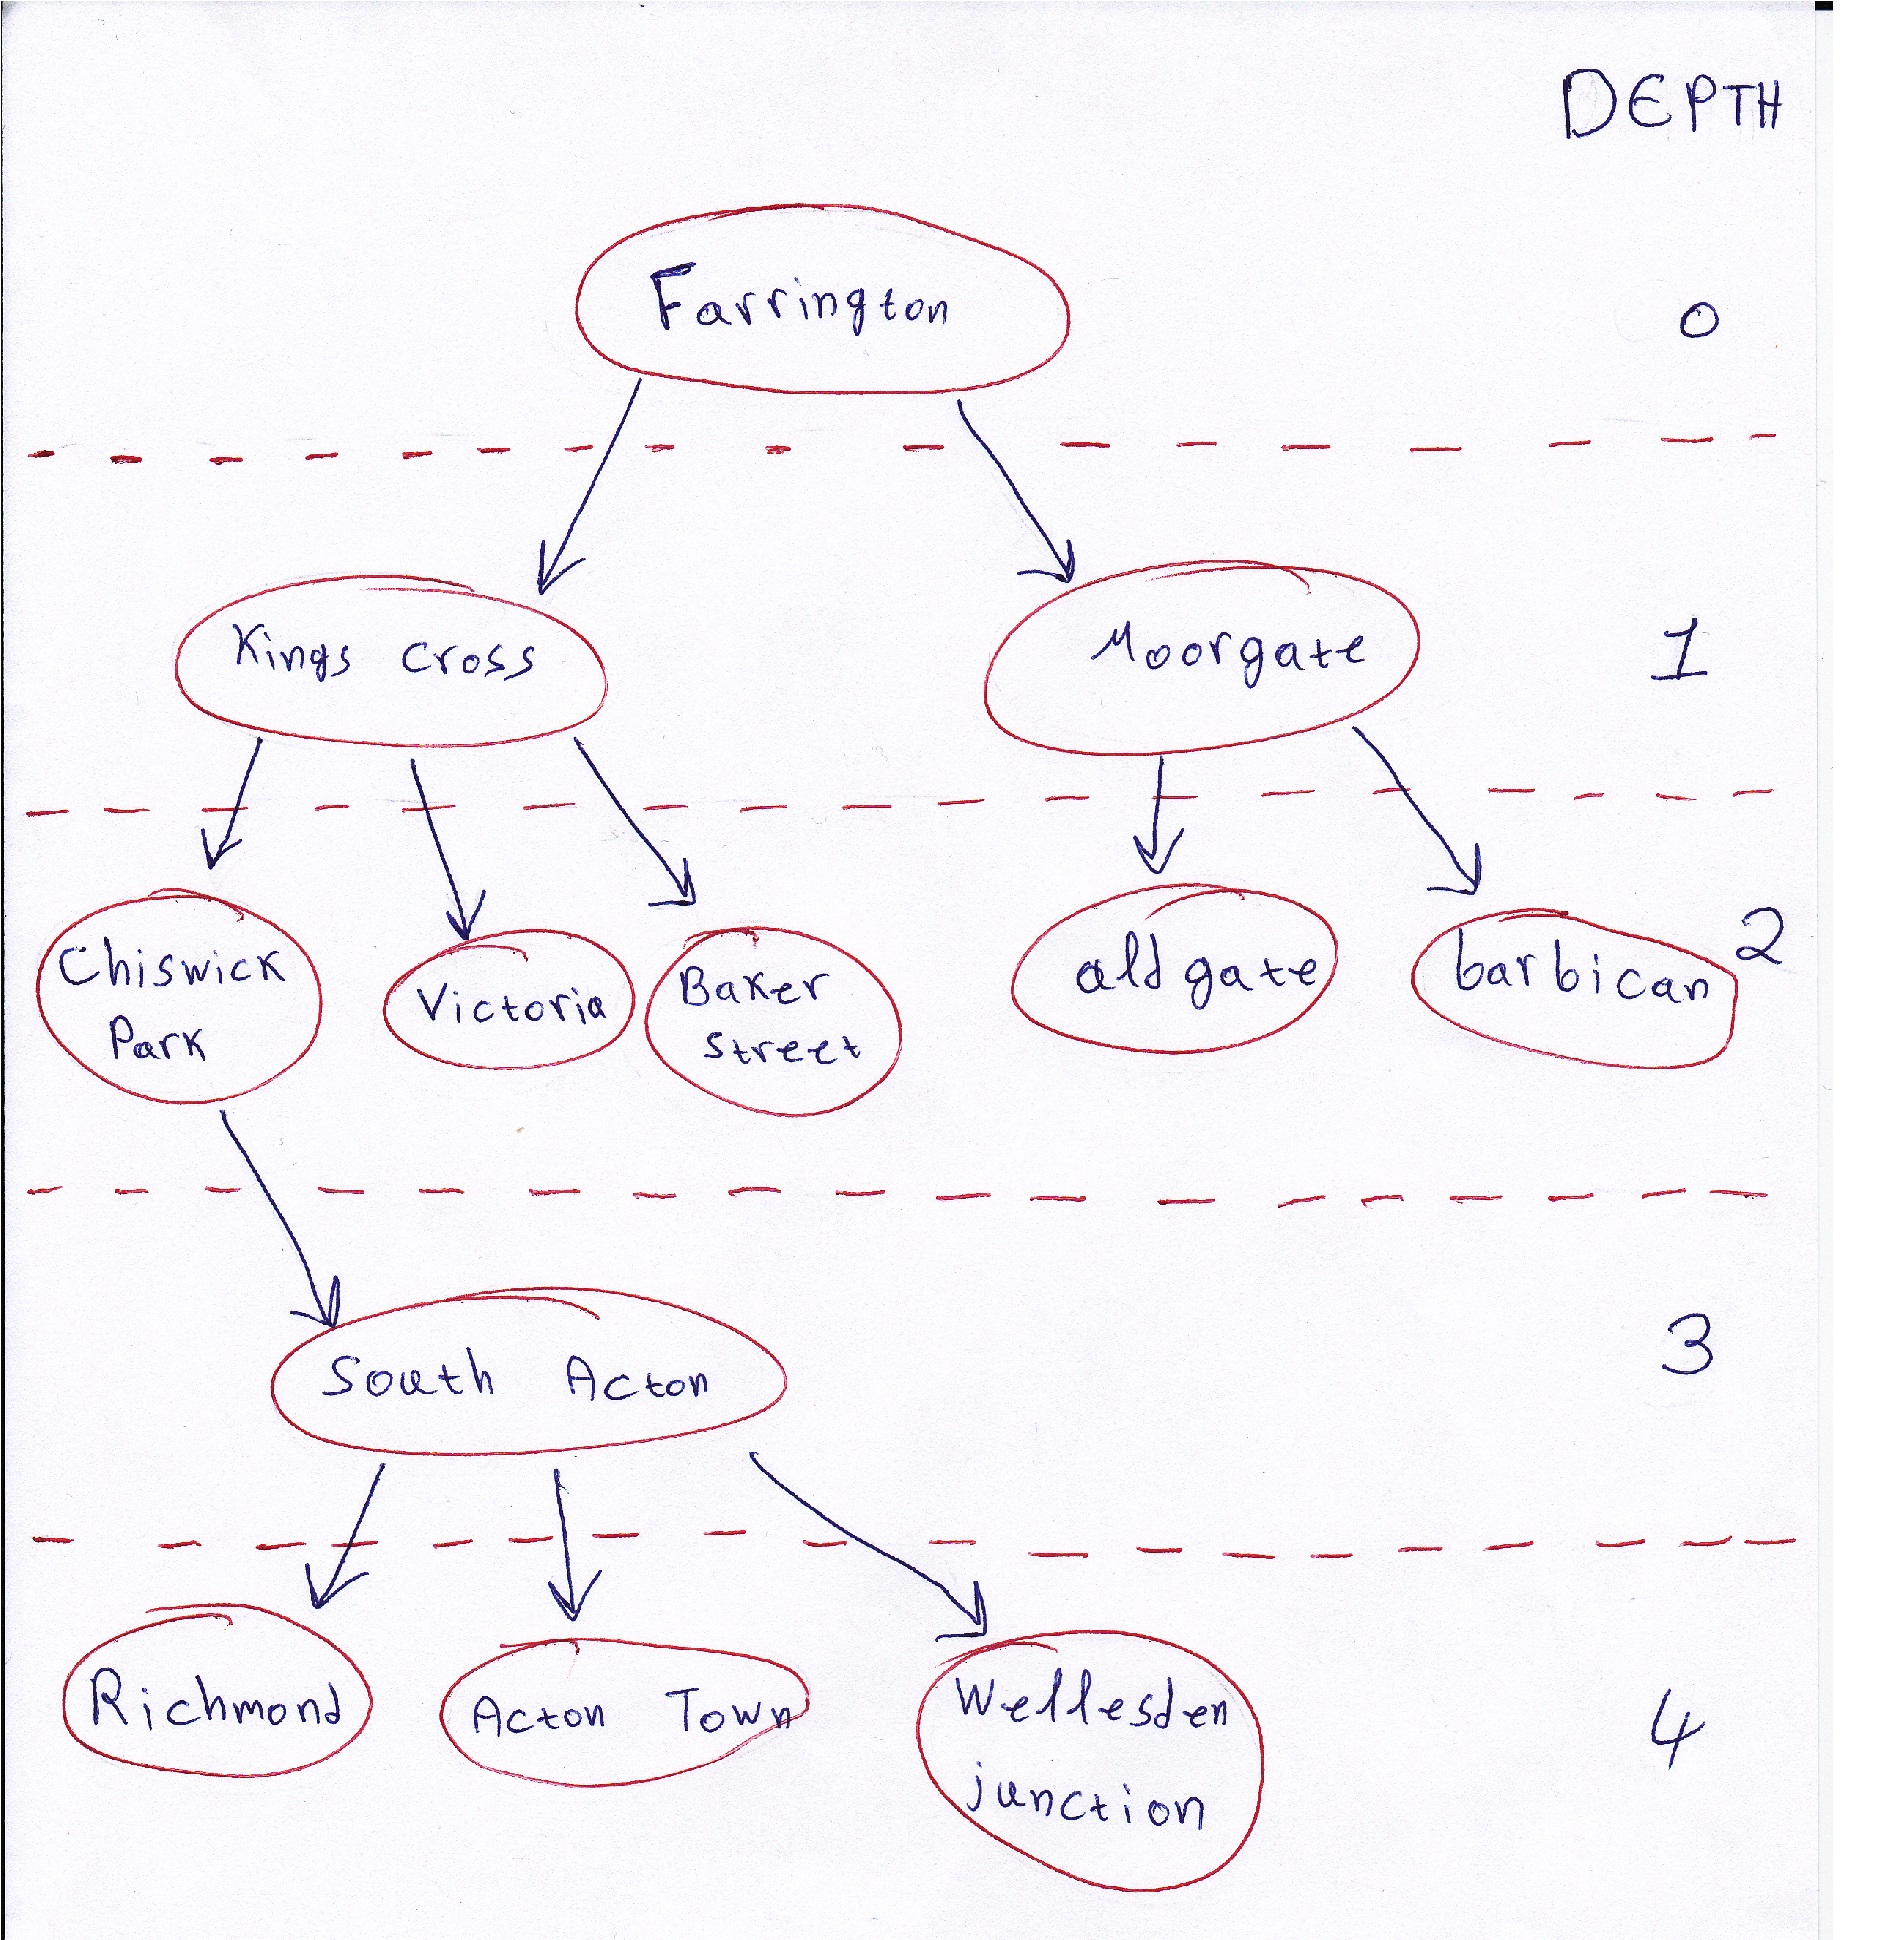 DEPTH
Farrington
0
Kings cross
Moorgate
1
Chiswick
Park
Victoria
Baker
street
aldgate
barbican
2
South Acton
3
Richmond
Acton Town
Wellesden
junction
4